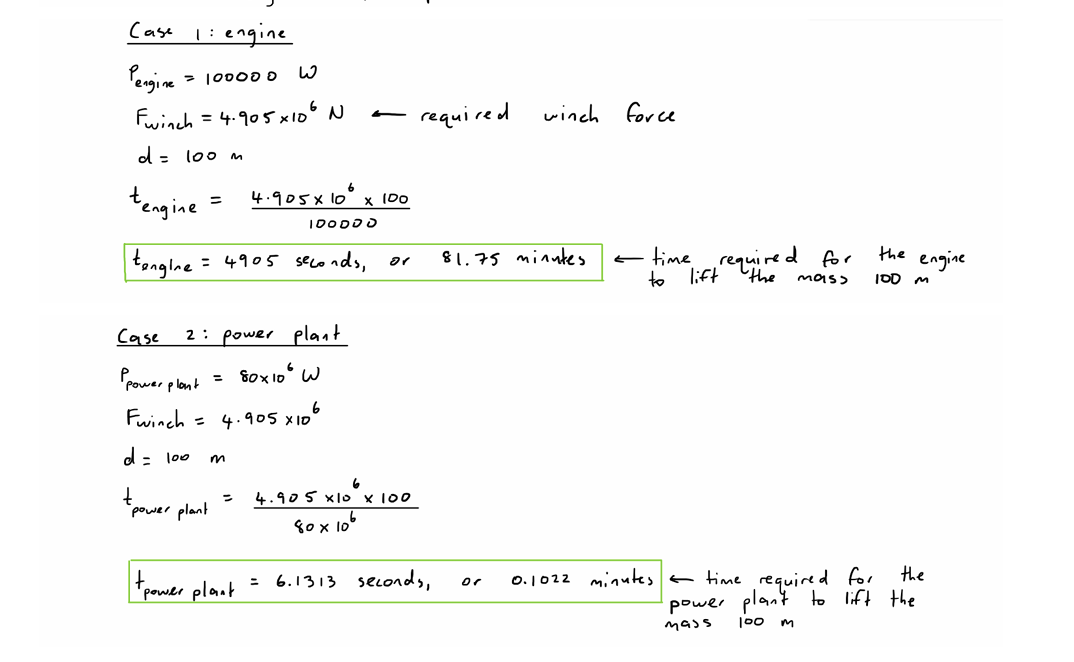 Case 1: engine
Pengine = 100000 W
Fwinch = 4.905 x10^6 N ← required winch force
d = 100 m
tengine = 4.905 x 10^6 x 100 / 100000
tengine = 4905 seconds, or 81.75 minutes ← time required for the engine
to lift the mass 100 m
Case 2: power plant
Ppower plant = 80x10^6 W
Fwinch = 4.905 x10^6
d = 100 m
tpower plant = 4.905 x10^6 x 100 / 80 x 10^6
tpower plant = 6.1313 seconds, or 0.1022 minutes ← time required for the
power plant to lift the
mass 100 m